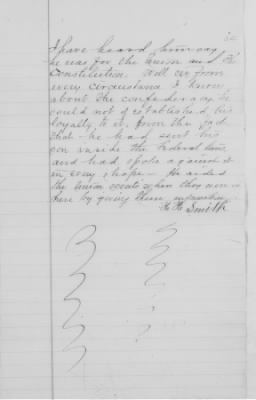 I have heard him say
he was for the Union and the
Constitution. Well as from
every circumstance I know
about the confederacy he
could not of established his
loyalty to it, from the fact
that he had sent his
son inside the Federal lines
and had spoke against it
in every shape He aided
the Union scouts when they were in
here by giving them information
Smith